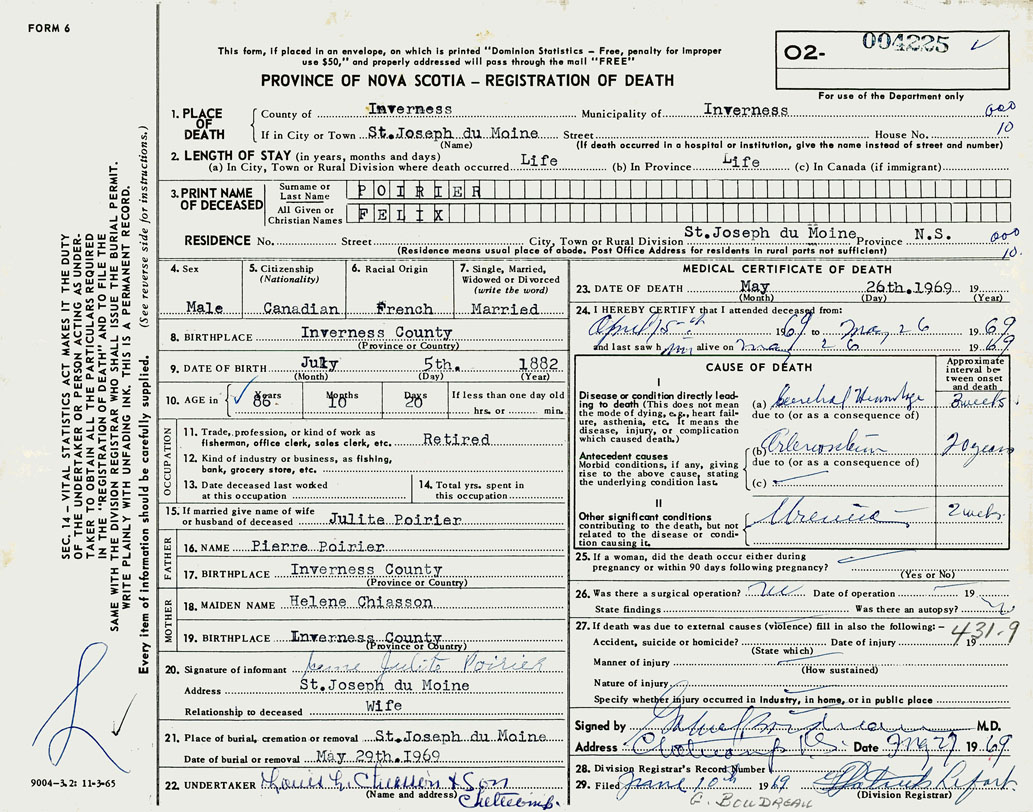 FORM 6
This form, if placed in an envelope, on which is printed "Dominion Statistics – Free, penalty for improper
use $50," and properly addressed will pass through the mail "FREE"
PROVINCE OF NOVA SCOTIA – REGISTRATION OF DEATH
O2- 004225 ✓
For use of the Department only
1. PLACE OF DEATH
County of Inverness Municipality of Inverness 000
If in City or Town St.Joseph du Moine Street House No. 10
(Name) (If death occurred in a hospital or institution, give the name instead of street and number)
2. LENGTH OF STAY (in years, months and days)
(a) In City, Town or Rural Division where death occurred Life (b) In Province Life (c) In Canada (if immigrant)
3. PRINT NAME OF DECEASED
Surname or Last Name POIRIER
All Given or Christian Names FELIX
RESIDENCE No. Street City, Town or Rural Division St.Joseph du Moine Province N.S. 000
(Residence means usual place of abode. Post Office Address for residents in rural parts not sufficient) 10.
4. Sex
Male
5. Citizenship
(Nationality)
Canadian
6. Racial Origin
French
7. Single, Married,
Widowed or Divorced
(write the word)
Married
8. BIRTHPLACE Inverness County
(Province or Country)
9. DATE OF BIRTH July 5th. 1882
(Month) (Day) (Year)
10. AGE in ✓ Years Months Days If less than one day old
86- 10 20 hrs. or min.
OCCUPATION
11. Trade, profession, or kind of work as
fisherman, office clerk, sales clerk, etc. Retired
12. Kind of industry or business, as fishing,
bank, grocery store, etc.
13. Date deceased last worked
at this occupation
14. Total yrs. spent in
this occupation
15. If married give name of wife
or husband of deceased Julite Poirier
FATHER
16. NAME Pierre Poirier
17. BIRTHPLACE Inverness County
(Province or Country)
MOTHER
18. MAIDEN NAME Helene Chiasson
19. BIRTHPLACE Inverness County
(Province or Country)
20. Signature of informant Julite Poirier
Address St.Joseph du Moine
Relationship to deceased Wife
21. Place of burial, cremation or removal St.Joseph du Moine
Date of burial or removal May 29th.1969
22. UNDERTAKER & Son
(Name and address) Cheticamp.
MEDICAL CERTIFICATE OF DEATH
23. DATE OF DEATH May 26th.1969 19
(Month) (Day) (Year)
24. I HEREBY CERTIFY that I attended deceased from:
April 15th 1969 to May 26 1969
and last saw him alive on May 26 1969
CAUSE OF DEATH
Approximate
interval be-
tween onset
and death
I
Disease or condition directly lead-
ing to death (This does not mean
the mode of dying, e.g., heart fail-
ure, asthenia, etc. It means the
disease, injury, or complication
which caused death.)
(a) Cerebral Hemorrhage 3 weeks
due to (or as a consequence of)
Antecedent causes
Morbid conditions, if any, giving
rise to the above cause, stating
the underlying condition last.
(b) 20 years
due to (or as a consequence of)
(c)
II
Other significant conditions
contributing to the death, but not
related to the disease or condi-
tion causing it.
Uremia 2 weeks
25. If a woman, did the death occur either during
pregnancy or within 90 days following pregnancy?
(Yes or No)
26. Was there a surgical operation? no Date of operation 19
State findings Was there an autopsy?
27. If death was due to external causes (violence) fill in also the following: –
431-9
Accident, suicide or homicide? Date of injury 19
(State which)
Manner of injury
(How sustained)
Nature of injury
Specify whether injury occurred in Industry, in home, or in public place
Signed by M.D.
Address Cheticamp N.S. Date May 27 1969
28. Division Registrar's Record Number
29. Filed June 10th 1969 Patrick Lefort
(Division Registrar)
G. BOUDREAU
SEC. 14 – VITAL STATISTICS ACT MAKES IT THE DUTY
OF THE UNDERTAKER OR PERSON ACTING AS UNDER-
TAKER TO OBTAIN ALL THE PARTICULARS REQUIRED
IN THE "REGISTRATION OF DEATH" AND TO FILE THE
SAME WITH THE DIVISION REGISTRAR WHO SHALL ISSUE THE BURIAL PERMIT.
WRITE PLAINLY WITH UNFADING INK. THIS IS A PERMANENT RECORD.
Every item of information should be carefully supplied. (See reverse side for instructions.)
9004-3.2: 11-3-65